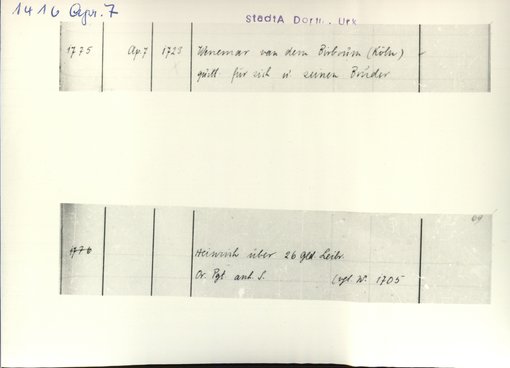 1416 Apr. 7
StadtA Dortm. Urk
1775 Ap. 7 1723 Wenemar van dem Birboum (Köln) -
quitt. für sich u seinen Bruder
69
1776 Heinrich über 26 Gld. Leibr.
Or. Pgt anh. S. (vgl. Nr. 1705